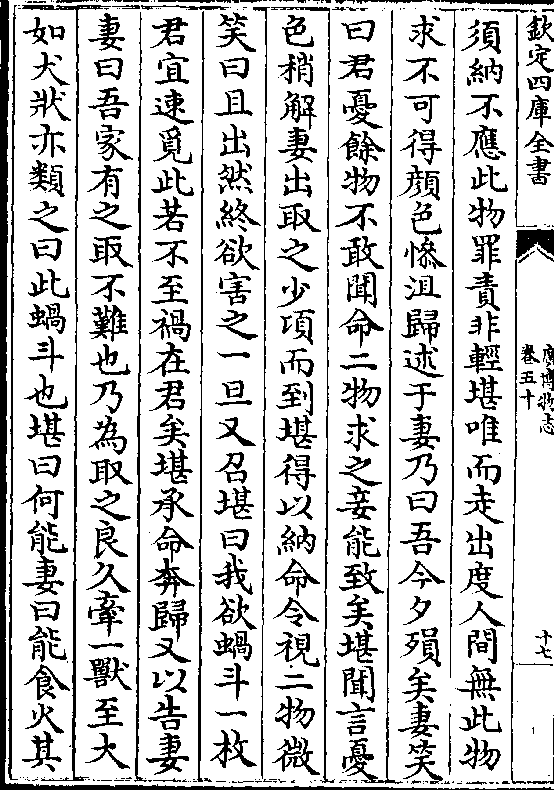 欽定四庫全書
廣博物志
卷五十
十七
須納不應此物罪責非輕堪唯而走出度人間無此物
求不可得顔色慘沮歸述于妻乃曰吾今夕殞矣妻笑
曰君憂餘物不敢聞命二物求之妾能致矣堪聞言憂
色稍解妻出取之少項而到堪得以納命令視二物微
笑曰且出然終欲害之一旦又召堪曰我欲蝸斗一枚
君宜速覓此若不至禍在君矣堪承命奔歸又以告妻
妻曰吾家有之取不難也乃為取之良久牽一獸至大
如犬狀亦類之曰此蝸斗也堪曰何能妻曰能食火其